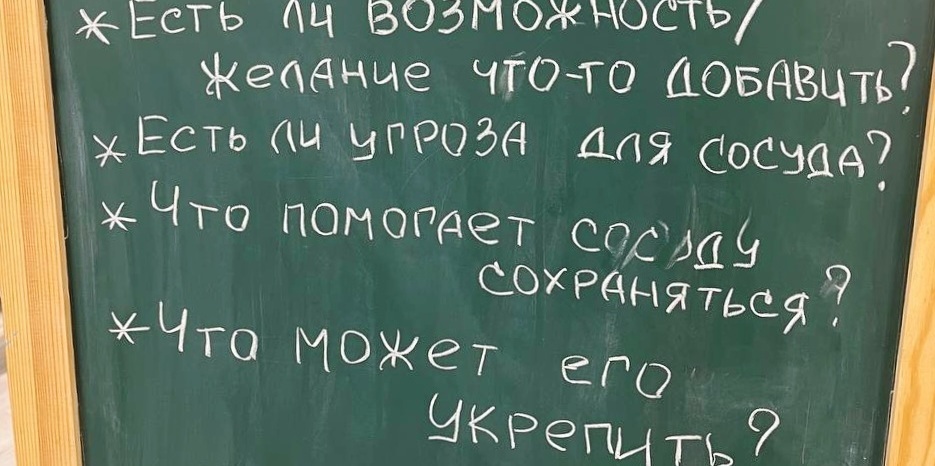 * Есть ли возможность/
желание что-то добавить?
* Есть ли угроза для сосуда?
* Что помогает сосуду
сохраняться?
* Что может его
укрепить?